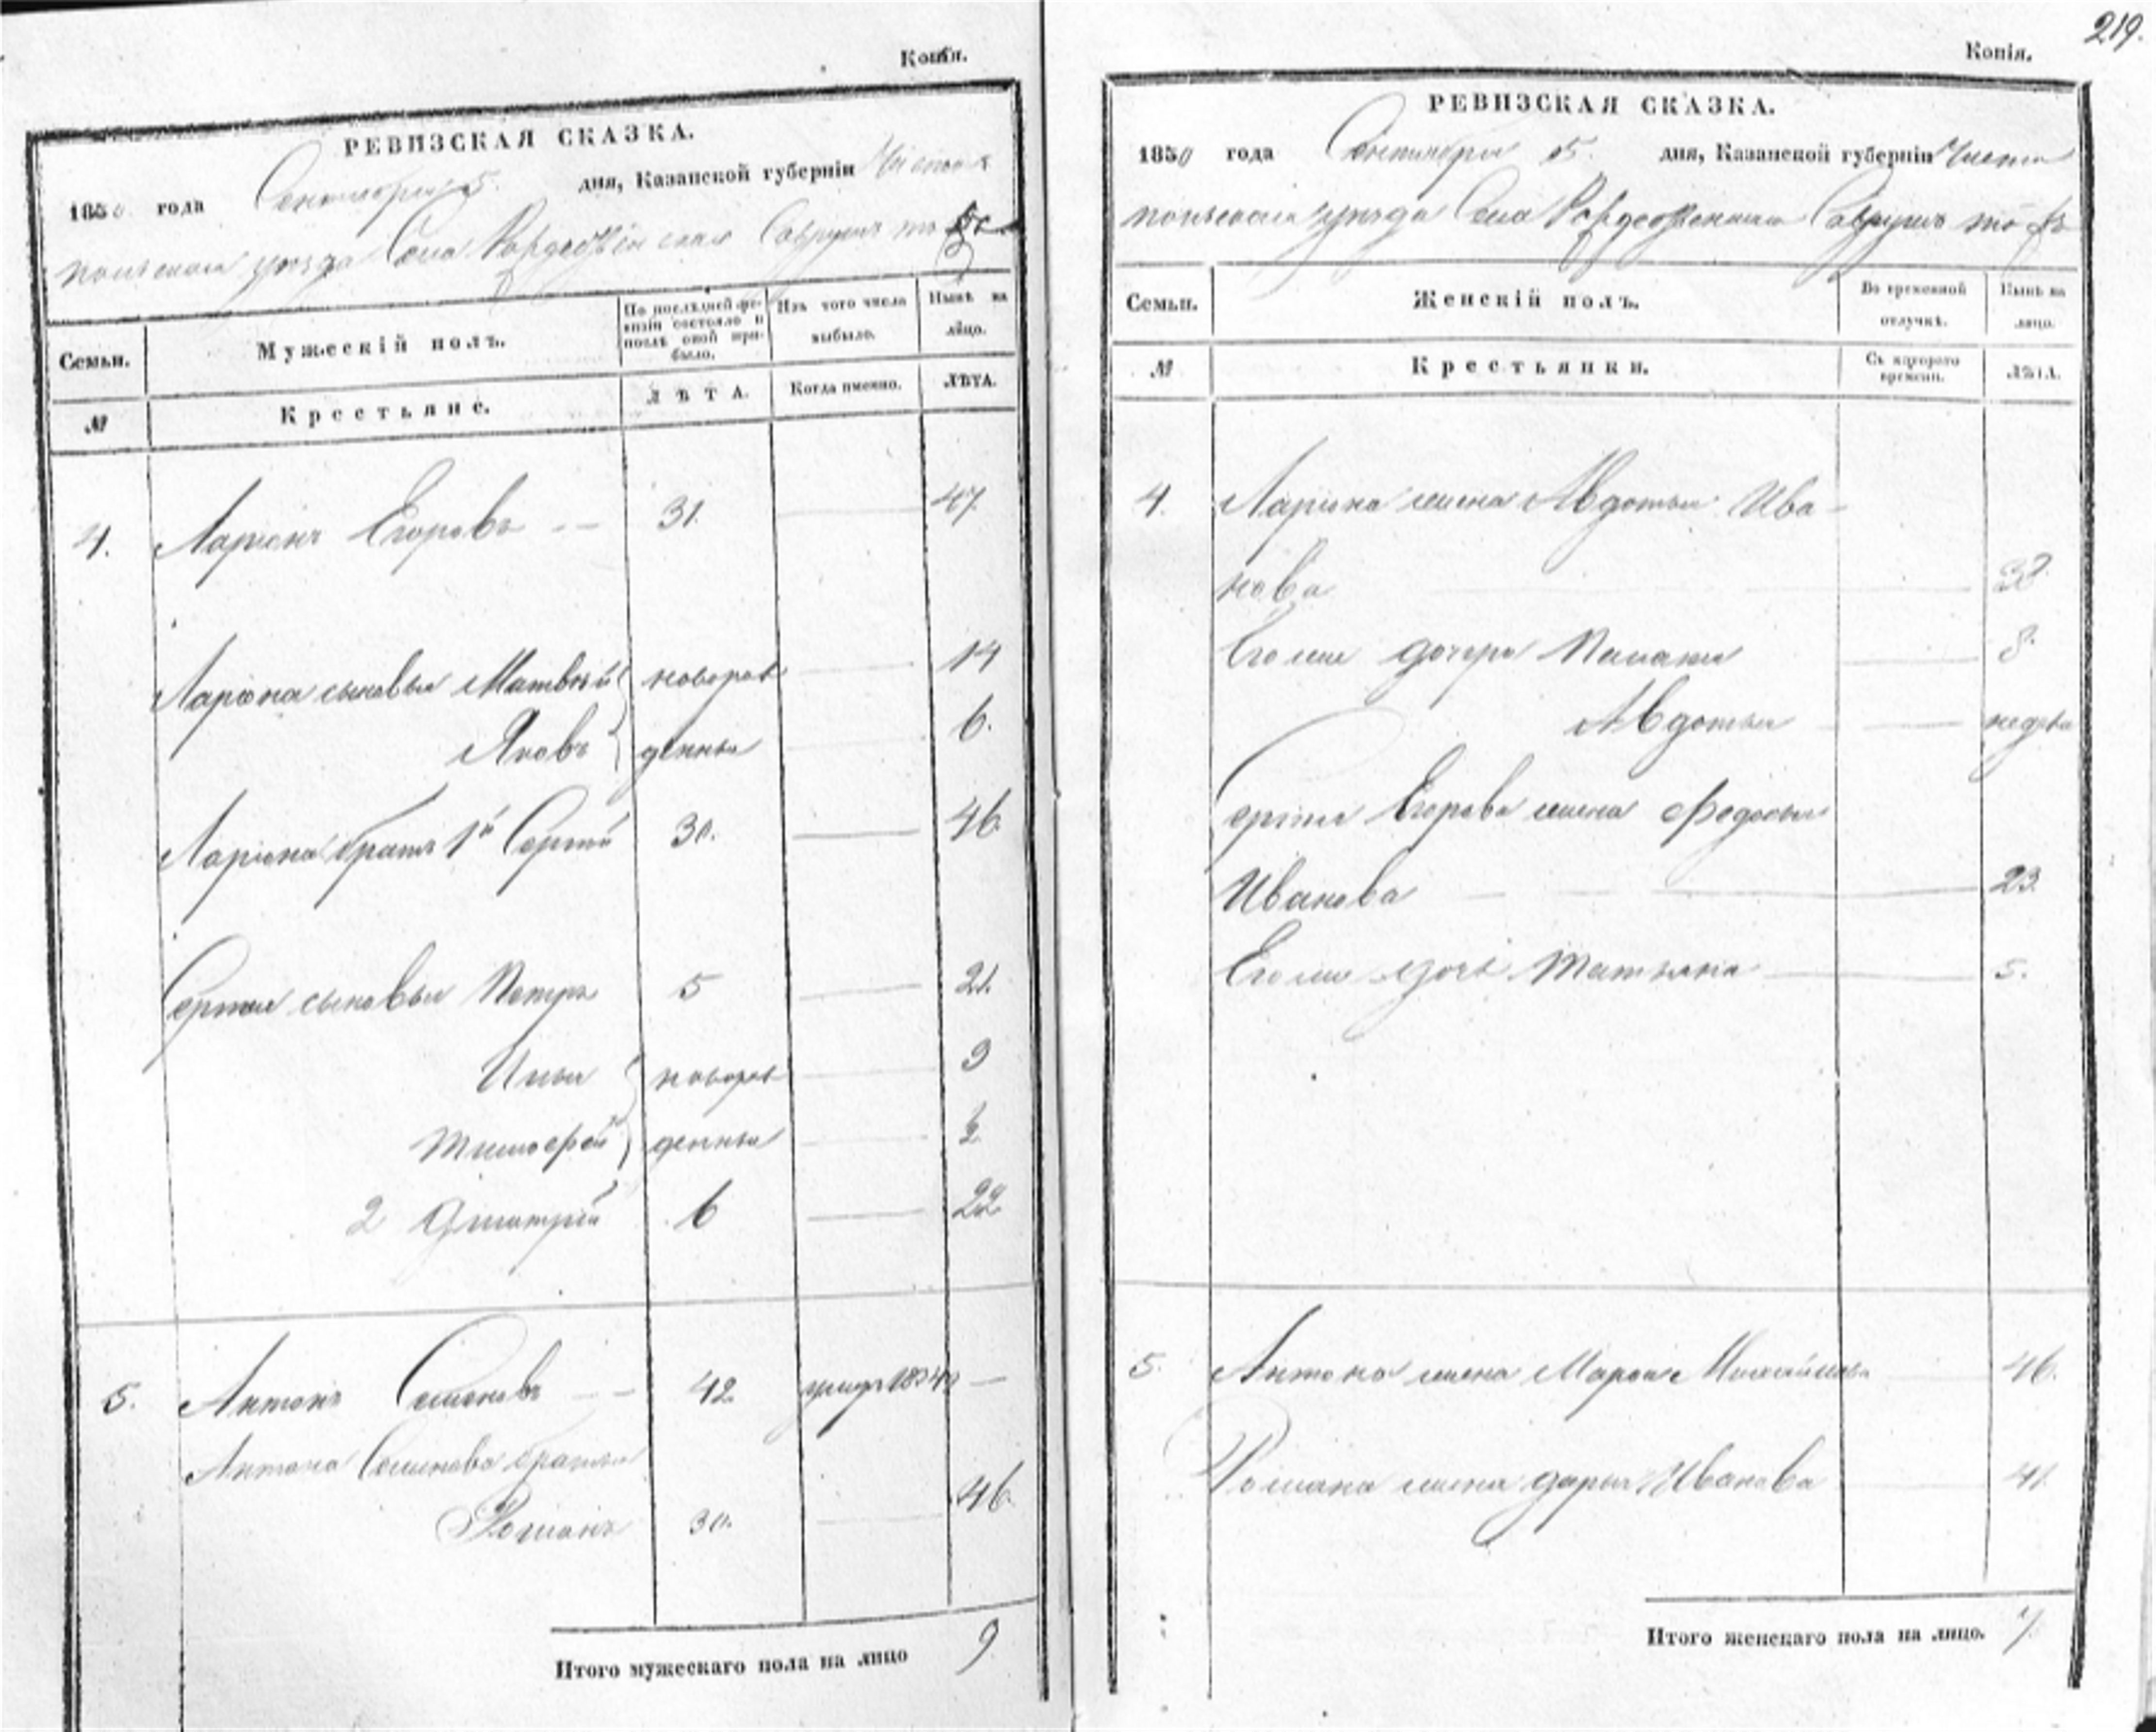 Копія.
РЕВИЗСКАЯ СКАЗКА.
1850 года Сентября 5. дня, Казанской губерніи Чисто
польскаго уѣзда Села Рождественскаго
Семьи.
Мужескій полъ.
По послѣдней ре-
визіи состояло и
послѣ оной при-
было.
Изъ того числа
выбыло.
Нынѣ на
лицо.
№
Крестьяне.
ЛѢТА.
Когда именно.
ЛѢТА.
4. Ларіонъ Егоровъ -- 31. 47.
Ларіона сыновья Матвѣй новорож 14
Яковъ денны 6.
Ларіона братъ 1й Сергѣй 30. 46
Сергѣя сыновья Петръ 5 21.
Илья новорож 9
Тимофей денны
2 Дмитрій 6 22
5. Антонъ Семеновъ -- 42. —
Антона Семенова братья
Романъ 30. 46.
Итого мужескаго пола на лицо 9.
219.
Копія.
РЕВИЗСКАЯ СКАЗКА.
1850 года Сентября 5. дня, Казанской губерніи Чисто
польскаго уѣзда Села Рождественскаго
Семьи.
Женскій полъ.
Во временной
отлучкѣ.
Нынѣ на
лицо.
№
Крестьянки.
Съ котораго
времени.
ЛѢТА.
4. Ларіона жена Авдотья Ива-
нова 38.
Его же дочери Пелагея 8.
Авдотья
Сергѣя Егорова жена Федосья
Иванова 23.
Его же дочь Татьяна 5.
5. Антона жена Марья 46.
Романа жена Дарья Иванова 41.
Итого женскаго пола на лицо. 7.